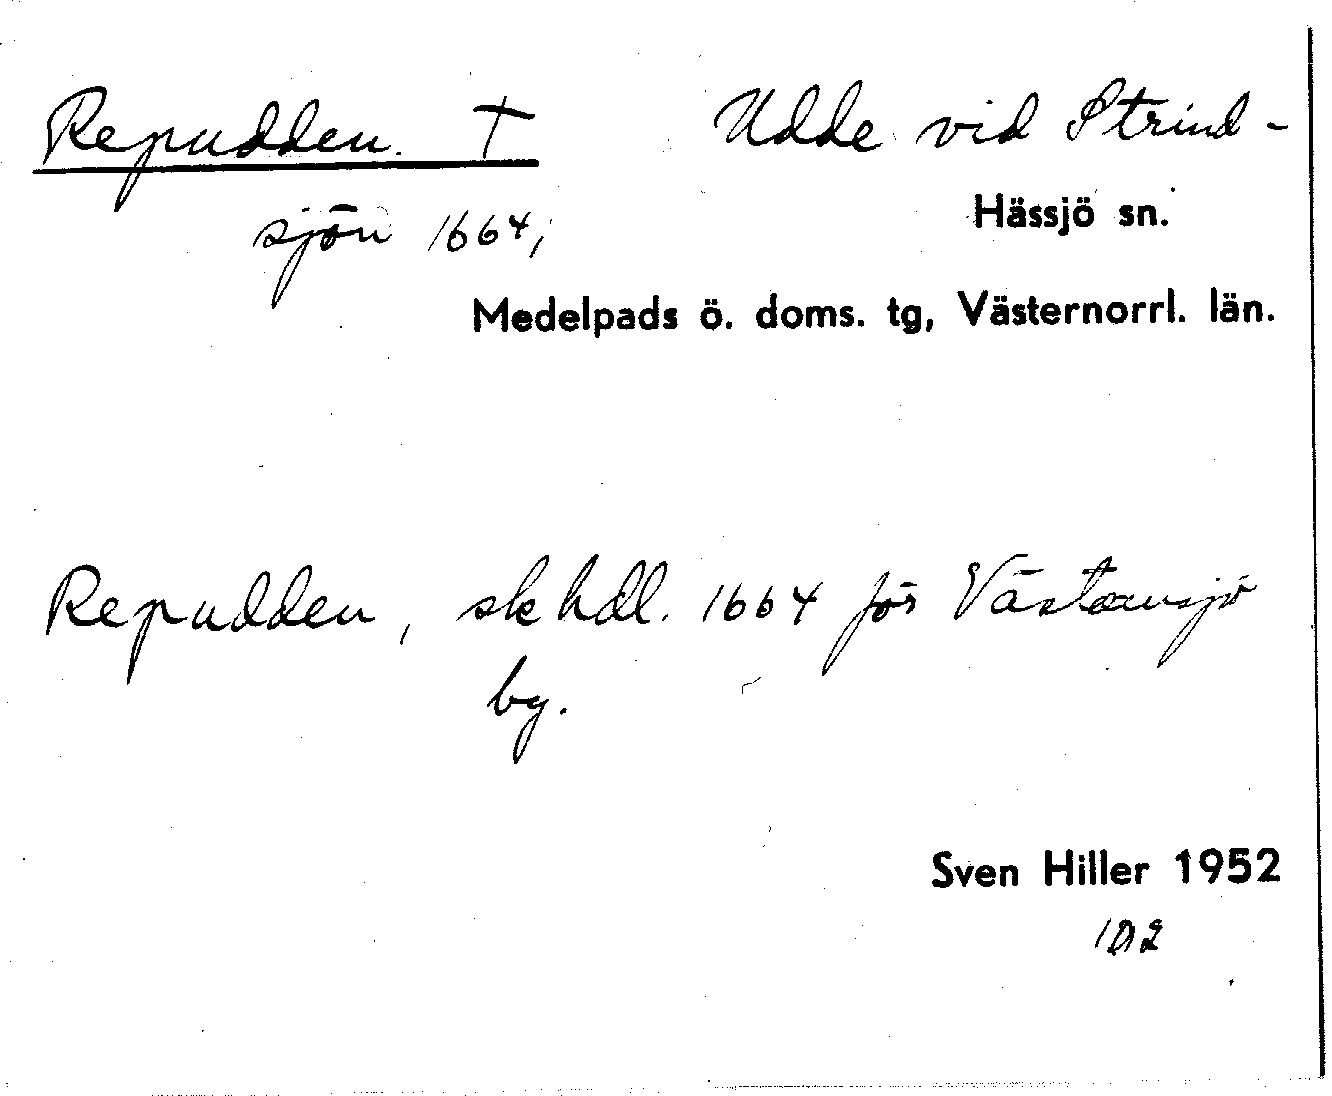 Repudden. † Udde vid Strind-
Hässjö sn.
sjön 1664;
Medelpads ö. doms. tg, Västernorrl. län.
Repudden, sk hdl. 1664 för Västansjö
by.
Sven Hiller 1952